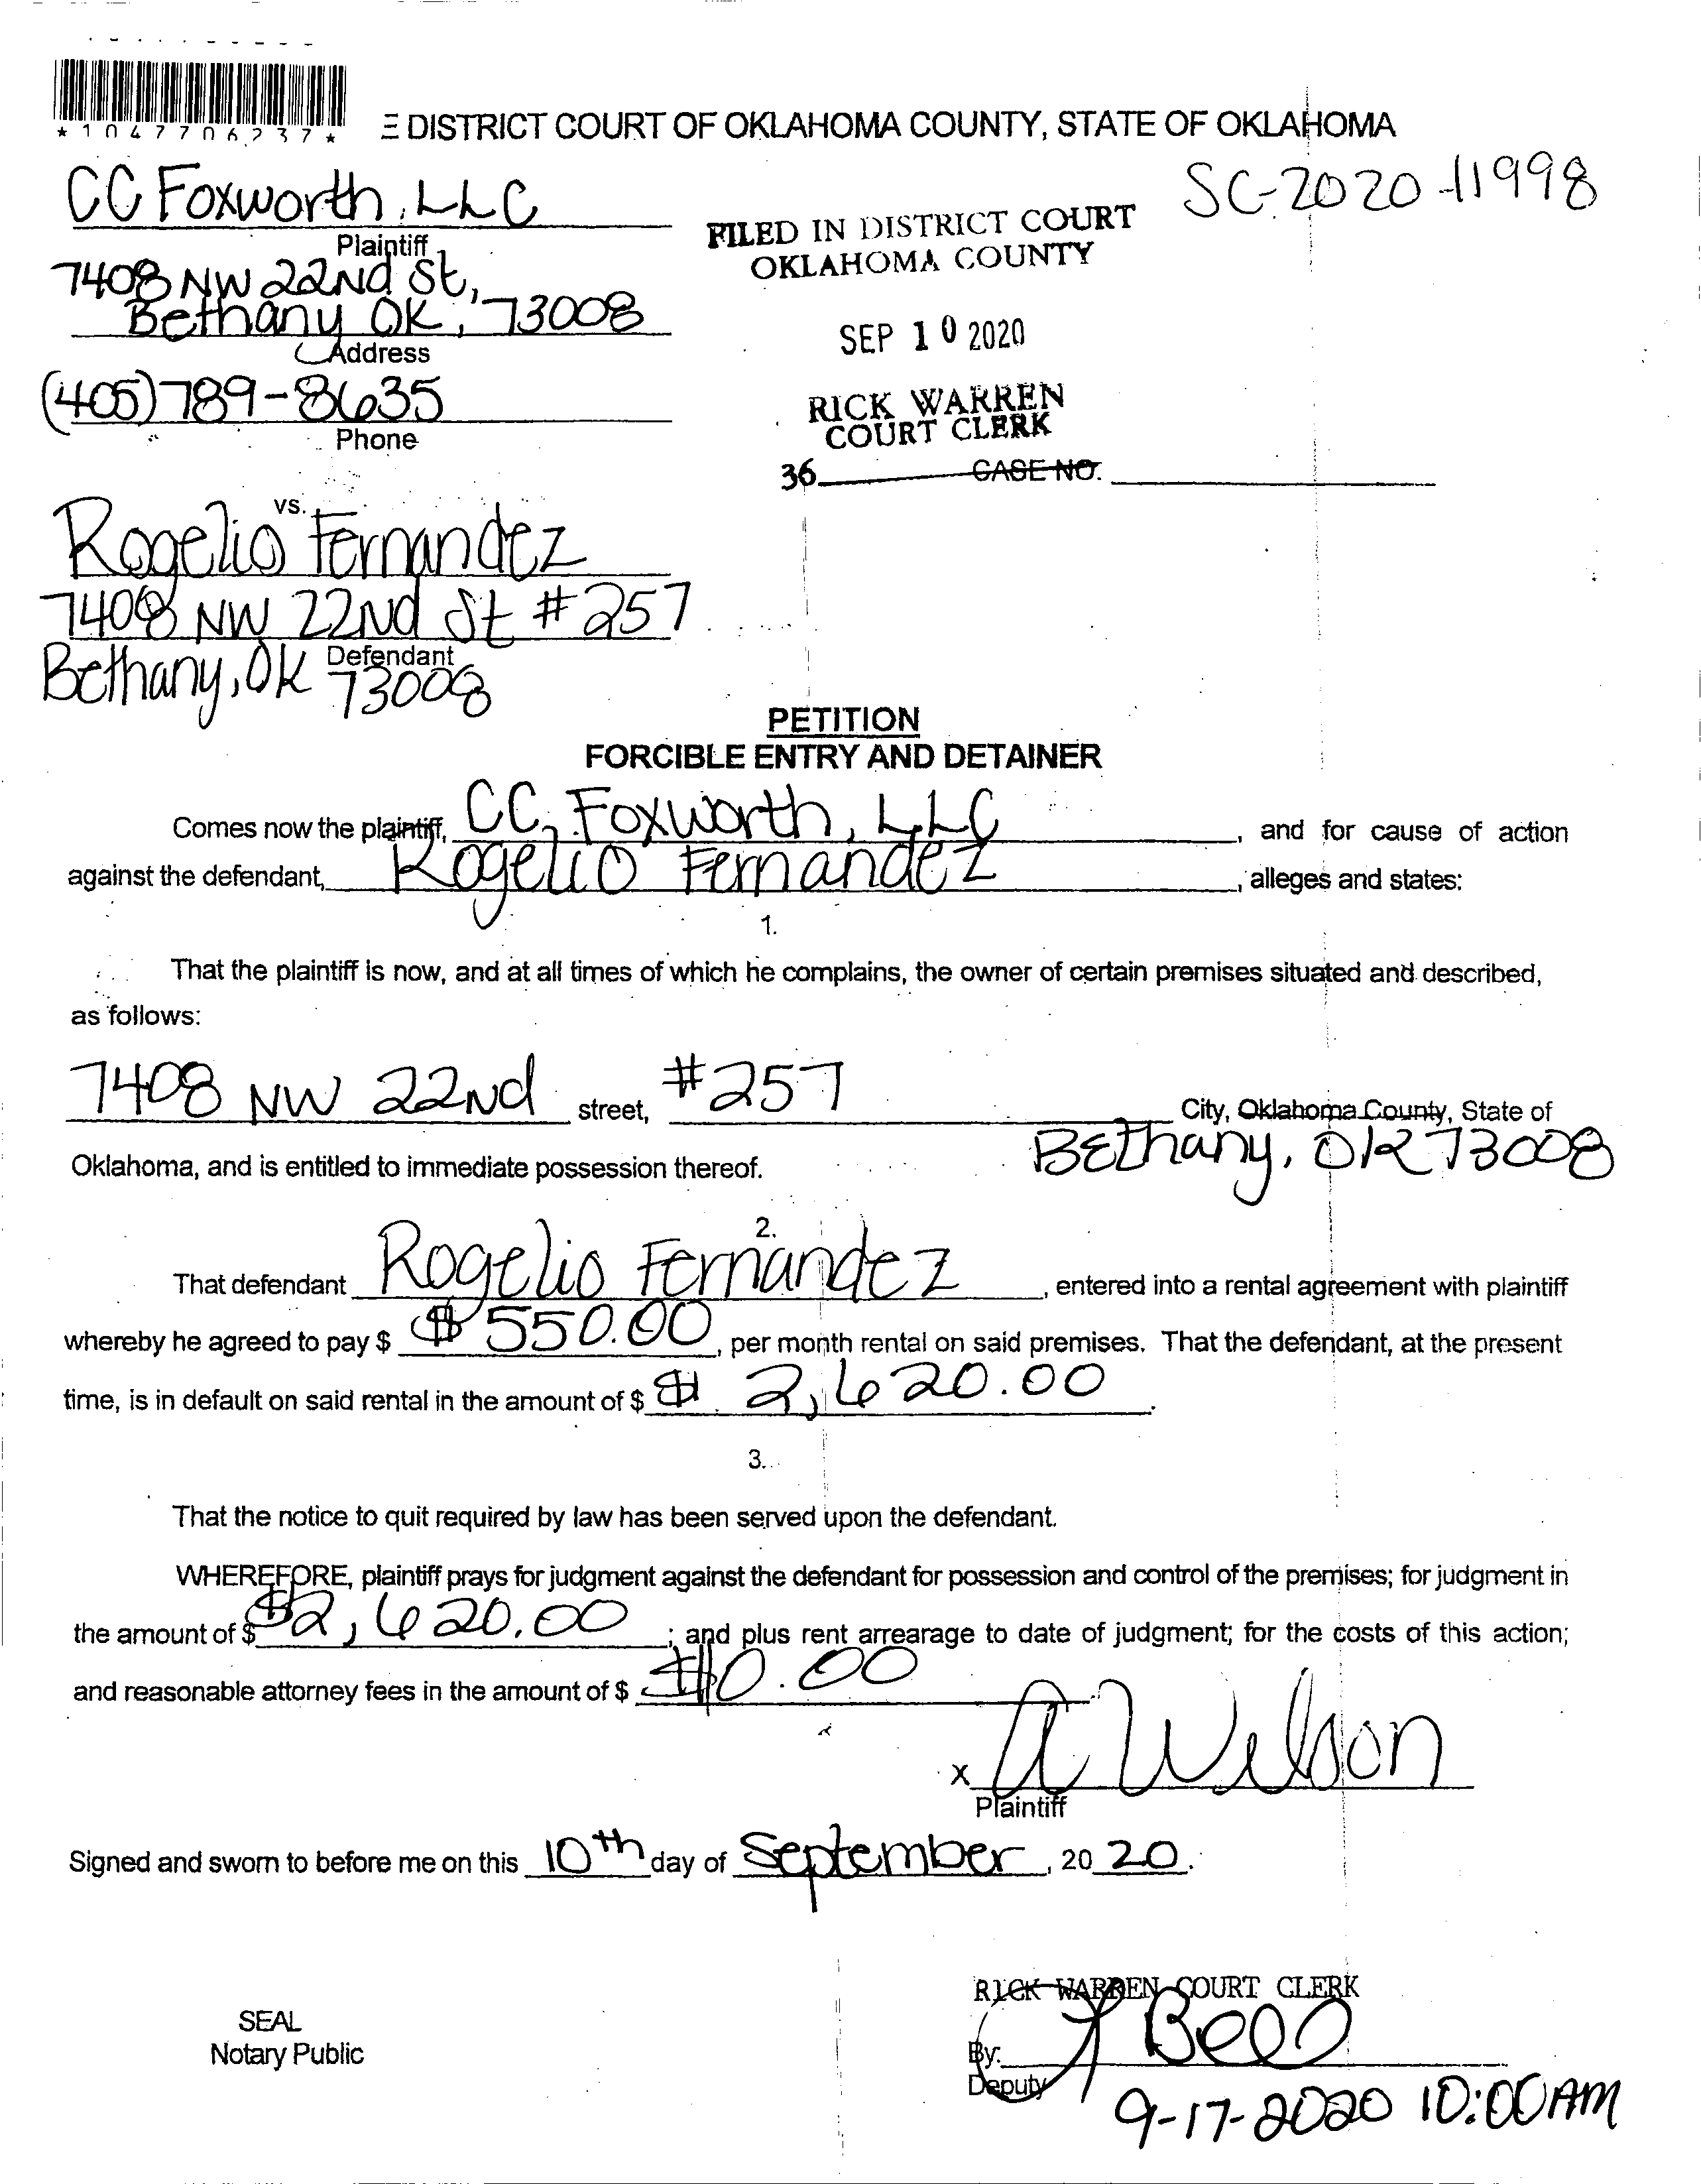 *1047706237*
E DISTRICT COURT OF OKLAHOMA COUNTY, STATE OF OKLAHOMA
SC-2020-11998
CC Foxworth, LLC
Plaintiff
7408 NW 22Nd St,
Bethany OK, 73008
Address
(405)789-8635
Phone
FILED IN DISTRICT COURT
OKLAHOMA COUNTY
SEP 10 2020
RICK WARREN
COURT CLERK
36 CASE NO.
vs.
Rogelio Fernandez
7408 NW 22Nd St #257
Defendant
Bethany, OK 73008
PETITION
FORCIBLE ENTRY AND DETAINER
Comes now the plaintiff, CC Foxworth, LLC, and for cause of action
against the defendant, Rogelio Fernandez, alleges and states:
1.
That the plaintiff is now, and at all times of which he complains, the owner of certain premises situated and described,
as follows:
7408 NW 22Nd street, #257 City, Oklahoma County, State of
Bethany, OK 73008
Oklahoma, and is entitled to immediate possession thereof.
2.
That defendant Rogelio Fernandez, entered into a rental agreement with plaintiff
whereby he agreed to pay $ $550.00, per month rental on said premises. That the defendant, at the present
time, is in default on said rental in the amount of $ $ 2,620.00.
3.
That the notice to quit required by law has been served upon the defendant.
WHEREFORE, plaintiff prays for judgment against the defendant for possession and control of the premises; for judgment in
the amount of $ $2,620.00; and plus rent arrearage to date of judgment; for the costs of this action;
and reasonable attorney fees in the amount of $ $0.00
x A Wilson
Plaintiff
Signed and sworn to before me on this 10th day of September, 20 20.
SEAL
Notary Public
RICK WARREN COURT CLERK
By: Bell
Deputy
9-17-2020 10:00AM